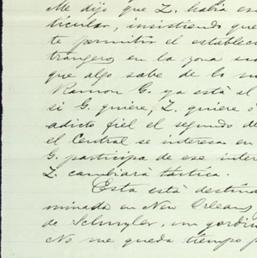 Me dijo que Z. había en
ticular, insistiendo que
te permitir el establec
trangero en la zona
que algo sabe de lo
Ramon G. ya está el
si G. quiere; Z. quiere
adicto fiel el segundo de
el Central se interesa en
G. participa de ese inter
Z. cambiará táctica.
Esta está destina
minada en New Orleans,
de Schuyler, un
No me queda tiempo p